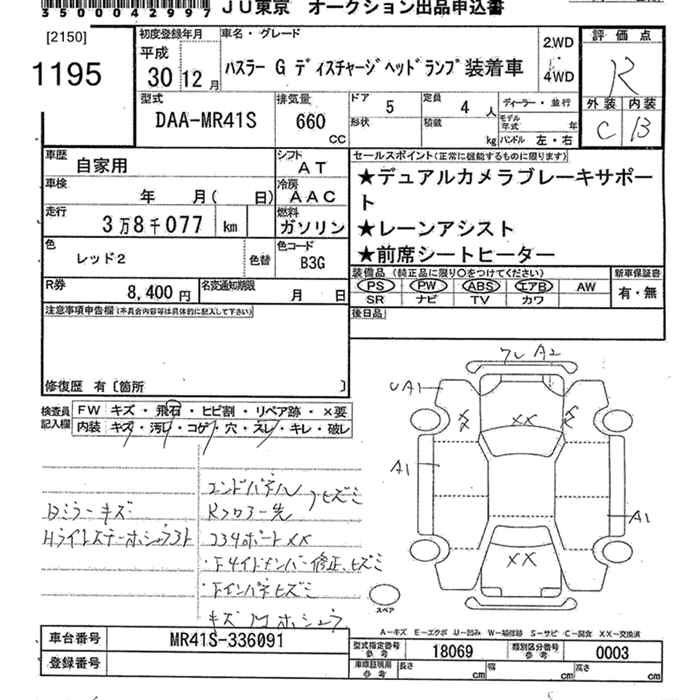 3500042997 JU東京 オークション出品申込書
[2150]
1195
初度登録年月 車名・グレード
平成 30 12月
ハスラー G ディスチャージヘッドランプ装着車
2.WD
4WD
評価点
R
外装 内装
C B
型式 DAA-MR41S
排気量 660 CC
ドア 5 定員 4 人
形状 積載 kg
ディーラー・並行
モデル年式 年
ハンドル 左・右
車歴 自家用
シフト AT
車検 年 月( 日)
冷房 AAC
走行 3万8千077 km
燃料 ガソリン
色 レッド2 色替
色コード B3G
R券 8,400円
名変通知期限 月 日
セールスポイント(正常に機能するものに限ります)
★デュアルカメラブレーキサポー
ト
★レーンアシスト
★前席シートヒーター
装備品(純正品に限り○をつけてください) 新車保証書
PS PW ABS エアB AW 有・無
SR ナビ TV カワ
後日品
注意事項申告欄(本具合内容等は具体的に記入して下さい)
修復歴 有〔箇所 〕
検査員記入欄
FW キズ・飛石・ヒビ割・リペア跡・×要
内装 キズ・汚レ・コゲ・穴・スレ・キレ・破レ
フレ A2
UA1
XX
A1
A1
XX
スペア
Bミラーキズ
エンドパネル
Rフロアー先
ヒズミ
コアサポートXX
修正、ヒズミ
Fインパネヒズミ
A-キズ E-エクボ U-凹み W-補修跡 S-サビ C-腐食 XX-交換済
車台番号 MR41S-336091
登録番号
型式指定番号 参考 18069
類別区分番号 参考 0003
車庫証明用 参考 長さ cm 幅 cm 高さ cm